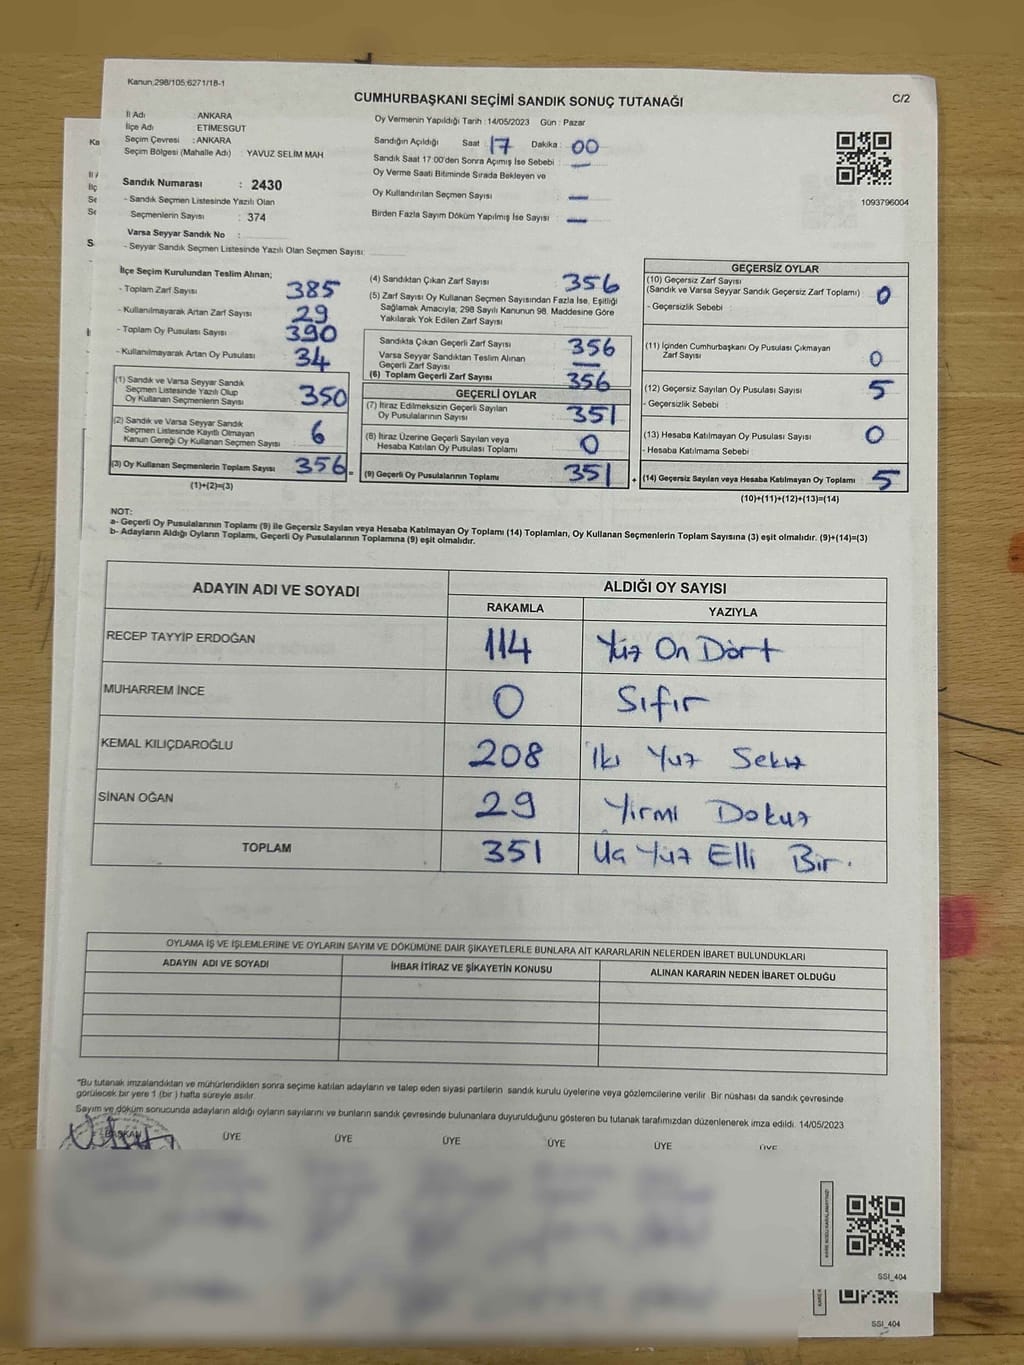 Kanun,298/105;6271/18-1
CUMHURBAŞKANI SEÇİMİ SANDIK SONUÇ TUTANAĞI
C/2
İl Adı : ANKARA
İlçe Adı : ETİMESGUT
Seçim Çevresi : ANKARA
Seçim Bölgesi (Mahalle Adı) : YAVUZ SELİM MAH
Sandık Numarası : 2430
- Sandık Seçmen Listesinde Yazılı Olan
Seçmenlerin Sayısı : 374
Varsa Seyyar Sandık No :
- Seyyar Sandık Seçmen Listesinde Yazılı Olan Seçmen Sayısı :
Oy Vermenin Yapıldığı Tarih : 14/05/2023 Gün : Pazar
Sandığın Açıldığı Saat 17 Dakika : 00
Sandık Saat 17:00'den Sonra Açımış İse Sebebi : —
Oy Verme Saati Bitiminde Sırada Bekleyen ve
Oy Kullandırılan Seçmen Sayısı : —
Birden Fazla Sayım Döküm Yapılmış İse Sayısı : —
1093796004
İlçe Seçim Kurulundan Teslim Alınan;
- Toplam Zarf Sayısı : 385
- Kullanılmayarak Artan Zarf Sayısı : 29
- Toplam Oy Pusulası Sayısı : 390
- Kullanılmayarak Artan Oy Pusulası : 34
(1) Sandık ve Varsa Seyyar Sandık
Seçmen Listesinde Yazılı Olup
Oy Kullanan Seçmenlerin Sayısı : 350
(2) Sandık ve Varsa Seyyar Sandık
Seçmen Listesinde Kayıtlı Olmayan
Kanun Gereği Oy Kullanan Seçmen Sayısı : 6
(3) Oy Kullanan Seçmenlerin Toplam Sayısı : 356 =
(1)+(2)=(3)
(4) Sandıktan Çıkan Zarf Sayısı : 356
(5) Zarf Sayısı Oy Kullanan Seçmen Sayısından Fazla İse, Eşitliği
Sağlamak Amacıyla; 298 Sayılı Kanunun 98. Maddesine Göre
Yakılarak Yok Edilen Zarf Sayısı :
Sandıkta Çıkan Geçerli Zarf Sayısı : 356
Varsa Seyyar Sandıktan Teslim Alınan
Geçerli Zarf Sayısı : —
(6) Toplam Geçerli Zarf Sayısı : 356
GEÇERLİ OYLAR
(7) İtiraz Edilmeksizin Geçerli Sayılan
Oy Pusulalarının Sayısı : 351
(8) İtiraz Üzerine Geçerli Sayılan veya
Hesaba Katılan Oy Pusulası Toplamı : 0
(9) Geçerli Oy Pusulalarının Toplamı : 351 +
GEÇERSİZ OYLAR
(10) Geçersiz Zarf Sayısı
(Sandık ve Varsa Seyyar Sandık Geçersiz Zarf Toplamı) : 0
- Geçersizlik Sebebi :
(11) İçinden Cumhurbaşkanı Oy Pusulası Çıkmayan
Zarf Sayısı : 0
(12) Geçersiz Sayılan Oy Pusulası Sayısı : 5
- Geçersizlik Sebebi :
(13) Hesaba Katılmayan Oy Pusulası Sayısı : 0
- Hesaba Katılmama Sebebi :
(14) Geçersiz Sayılan veya Hesaba Katılmayan Oy Toplamı : 5
(10)+(11)+(12)+(13)=(14)
NOT:
a- Geçerli Oy Pusulalarının Toplamı (9) ile Geçersiz Sayılan veya Hesaba Katılmayan Oy Toplamı (14) Toplamları, Oy Kullanan Seçmenlerin Toplam Sayısına (3) eşit olmalıdır. (9)+(14)=(3)
b- Adayların Aldığı Oyların Toplamı, Geçerli Oy Pusulalarının Toplamına (9) eşit olmalıdır.
ADAYIN ADI VE SOYADI
ALDIĞI OY SAYISI
RAKAMLA YAZIYLA
RECEP TAYYİP ERDOĞAN 114 Yüz On Dört
MUHARREM İNCE 0 Sıfır
KEMAL KILIÇDAROĞLU 208 İki Yüz Sekiz
SİNAN OĞAN 29 Yirmi Dokuz
TOPLAM 351 Üç Yüz Elli Bir.
OYLAMA İŞ VE İŞLEMLERİNE VE OYLARIN SAYIM VE DÖKÜMÜNE DAİR ŞİKAYETLERLE BUNLARA AİT KARARLARIN NELERDEN İBARET BULUNDUKLARI
ADAYIN ADI VE SOYADI İHBAR İTİRAZ VE ŞİKAYETİN KONUSU ALINAN KARARIN NEDEN İBARET OLDUĞU
*Bu tutanak imzalandıktan ve mühürlendikten sonra seçime katılan adayların ve talep eden siyasi partilerin sandık kurulu üyelerine veya gözlemcilerine verilir. Bir nüshası da sandık çevresinde
görülecek bir yere 1 (bir ) hafta süreyle asılır.
Sayım ve döküm sonucunda adayların aldığı oyların sayılarını ve bunların sandık çevresinde bulunanlara duyurulduğunu gösteren bu tutanak tarafımızdan düzenlenerek imza edildi. 14/05/2023
BAŞKAN ÜYE ÜYE ÜYE ÜYE ÜYE ÜYE
SSI_404
SSI_404